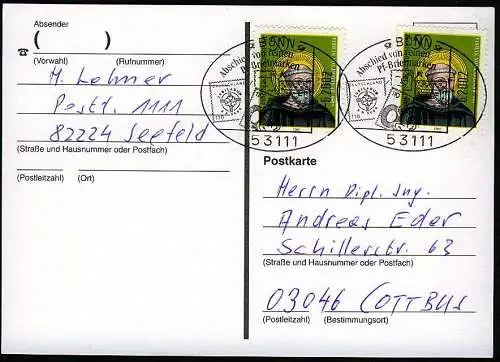 Absender
(                )
(Vorwahl) (Rufnummer)
M. Lehner
Postf. 1111
82224 Seefeld
(Straße und Hausnummer oder Postfach)
(Postleitzahl) (Ort)
BONN
Abschied von reinen
Pf-Briefmarken
110
53111
BONN
Abschied von reinen
Pf-Briefmarken
110
53111
Postkarte
Herrn Dipl. Ing.
Andreas Eder
Schillerstr. 63
(Straße und Hausnummer oder Postfach)
03046 COTTBUS
(Postleitzahl) (Bestimmungsort)